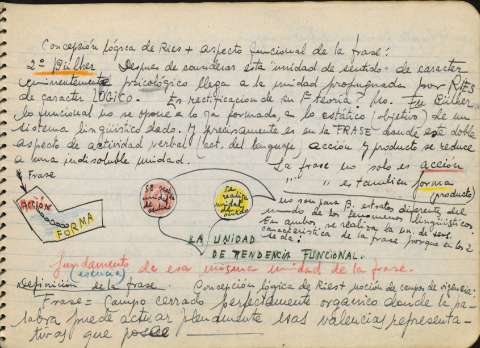 Concepción lógica de Ries + aspecto funcional de la frase:
2º Bülher. Despues de considerar esta unidad de sentido de caracter
eminentemente psicológico llega a la unidad propugnada por RIES
de caracter LOGICO. En rectificación de su 1ª teoría? No. En Bülher
lo funcional no se opone a lo ya formado, en lo estático (objetivo) de un
sistema lingüistico dado. Y precisamente es en la FRASE donde este doble
aspecto de actividad verbal (act. del lenguaje) acción y producto se reduce
a una indisoluble unidad.
La frase no solo es acción
" " es tambien forma
(producto)
Frase
ACCION
FORMA
se realiza unidad
se realiza unidad de sentido
no son para B. estratos diferentes del
mundo de los fenomenos lingüisticos
En ambos se realiza la un. de sent.
caracteristica de la frase porque en los 2
se da:
LA UNIDAD
DE TENDENCIA FUNCIONAL.
fundamento de esa misma unidad de la frase.
(esencia)
Definición de la frase. Concepción lógica de Ries + noción de campo de vigencia:
Frase = Campo cerrado perfectamente organico donde la pa-
labra puede actuar plenamente esas valencias representa-
tivas que posee